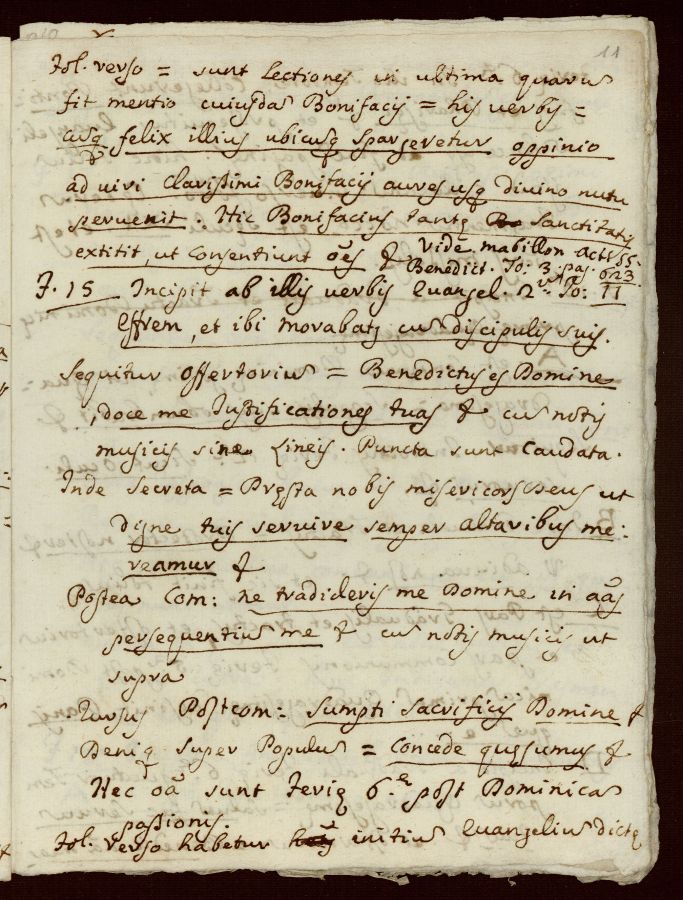 11
Fol. verso = sunt Lectiones in ultima quarum
fit mentio cuiusdam Bonifacij = his verbis =
cumq felix illius ubicumq spargeretur oppinio
ad viri Clarissimi Bonifacij aures usq divino nutu
pervenit. Hic Bonifacius tantę Sanctitatis
extitit, ut Consentiunt oēs & Vide mabillon Act. SS.
Benedict. To: 3. pag. 623.
F. 15 Incipit ab illis verbis Evangel. 2 To: 11
Effrem, et ibi morabatur cum discipulis suis.
Sequitur offertorium = Benedictus es Domine
, doce me Iustificationes tuas & cum notis
musicis sine Lineis. Puncta sunt Caudata.
Inde Secreta = Pręsta nobis misericors Deus ut
digne tuis servire semper altaribus me:
reamur &
Postea Com: ne tradideris me Domine in aās
persequentium me & cum notis musicis ut
supra
Rursus Postcom: Sumpti Sacrificij Domine &
Deniq super Populum = Concede quęsumus &
Hec oā sunt Ferię 6.ę post Dominicam
passionis.
Fol. verso habetur initium Evangelium dictę